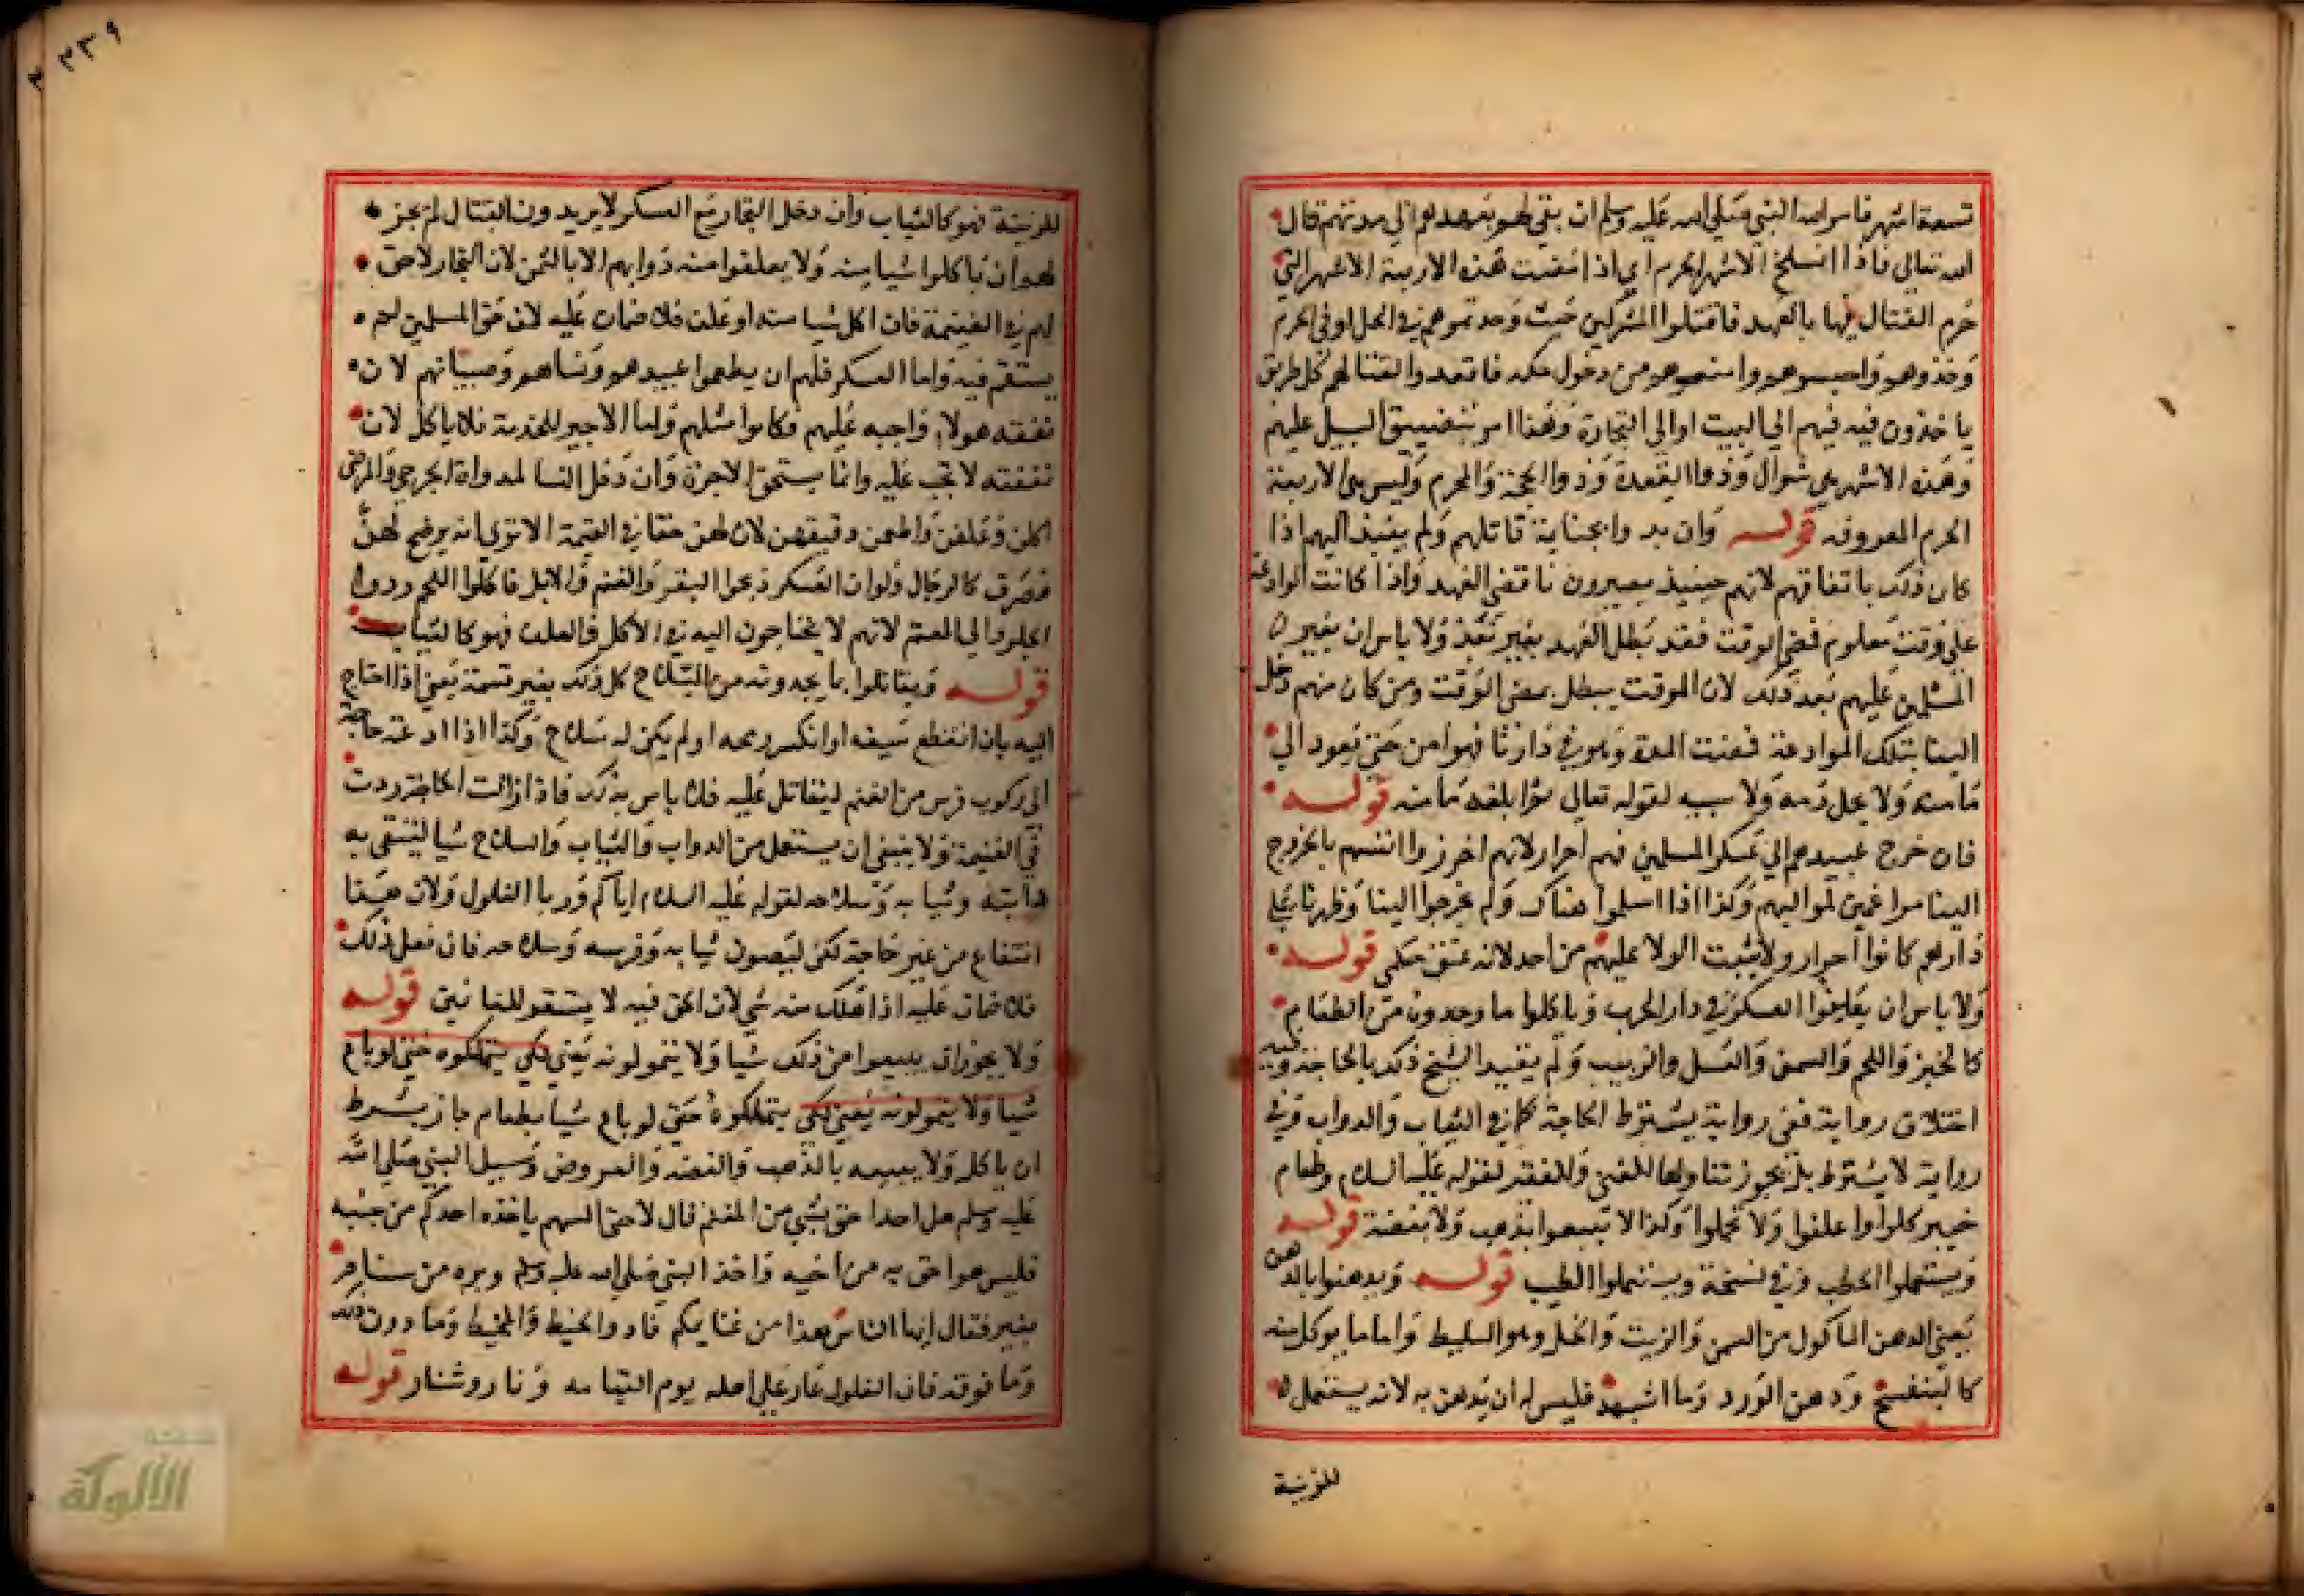 تسعة اشهر فامر الله النبي صلى الله عليه وسلم ان يتقي لهم بعهدهم الي مدتهم قال
الله تعالي فاذا انسلخ الاشهر الحرم اي اذا مضت هذه الاربعة الاشهر التي
حرم القتال فيها بالعهد فاقتلوا المشركين حيث وجدتموهم في الحل او في الحرم
وخذوهم واحبسوهم وامنعوهم من دخول مكه فاقعدوا لقتالهم كل طريق
ياخذون فيه فيهم الي البيت او الي التجارة وهذا امر بتضييق السبيل عليهم
وهذه الاشهر هي شوال وذوا القعدة وذوا الحجة والمحرم وليس هي الاربعة
الحرم المعروفه قوله وان بدوا بجناية قاتلهم ولم ينبذ اليهم اذا
كان ذلك باتفاقهم لانهم حينيذ يصيرون ناقضي العهد واذا كانت الموادعة
على وقت معلوم فمضي الوقت فقد بطل العهد بغير نبذ ولا باس ان يغير
المسلمين عليهم بعد ذلك لان الموقت يبطل بمضي الوقت ومن كان منهم دخل
الينا بتلك الموادعة فمضت المدة وهو في دارنا فهو امن حتى يعود الي
مامنه ولا يحل دمه ولا سبيه لقوله تعالي ثم ابلغه مامنه قوله
فان خرج عبيدهم الي عسكر المسلمين فهم احرار لانهم احرزوا انفسهم بالخروج
الينا مراغمين لمواليهم وكذا اذا اسلموا هناك ولم يخرجوا الينا وظهرنا علي
دارهم كانوا احرار ولا يثبت الولا عليهم من احد لانه عتق حكمي قوله
ولا باس ان يعلفوا العسكر في دار الحرب وياكلوا ما وجدوه من الطعام
كالخبز واللحم والسمن والعسل والزبيب ولم يقيد الشيخ ذلك بالحاجة وفيه
اختلاف رواية ففي رواية يشترط الحاجة كما في الثياب والدواب وفي
رواية لا يشترط بل يجوز تناولها للغني وللفقير لقوله عليه السلام وطعام
خيبر كلوا واعلفوا ولا تحملوا وكذا لا تبيعوا بذهب ولا بفضة قوله
ويستعملوا الحطب وفي نسخة ويستعملوا الطيب قوله ويدهنوا بالدهن
يعني الدهن الماكول من السمن والزيت والخل وهو السليط واما ما يوكل منه
كالبنفسج ودهن الورد وما اشبهه فليس له ان يدهن به لانه يستعمل
للزينة
للزينة فهو كالثياب وان دخل التجار مع العسكر لا يريدون القتال لم يجز
لهم ان ياكلوا شيا منه ولا يعلفوا منه دوابهم الا بالثمن لان التجار لا حق
لهم في الغنيمة فان اكل شيا منه او علف فلا ضمان عليه لان حق المسلمين لم
يستقر فيه واما العسكر فلهم ان يطعموا عبيدهم ونساهم وصبيانهم لان
نفقة هولا واجبه عليهم فكانوا مثلهم واما الاجير للخدمة فلا ياكل لان
نفقته لا تجب عليه وانما يستحق الاجرة وان دخل النسا لمداواة الجرحي والمرضى
اكلن وعلفن واطعمن رقيقهن لان لهن حقا في الغنيمة الا تري انه يرضخ لهن
فصرن كالرجال ولو ان العسكر ذبحوا البقر والغنم والابل فاكلوا اللحم ردوا
الجلود الي المغنم لانهم لا يحتاجون اليه في الاكل والعلف فهو كالثياب
قوله ويقاتلوا بما يجدونه من السلاح كل ذلك بغير قسمة يعني اذا احتاج
اليه بان انقطع سيفه او انكسر رمحه او لم يكن له سلاح وكذا اذا دعته حاجة
الي ركوب فرس من المغنم ليقاتل عليه فلا باس بذلك فاذا زالت الحاجة ردت
في الغنيمة ولا ينبغي ان يستعمل من الدواب والثياب والسلاح شيا ليتقي به
دابته وثيابه وسلاحه لقوله عليه السلام اياكم وربا الغلول ولان هذا
انتفاع من غير حاجة لكن ليصون ثيابه وفرسه وسلاحه فان فعل ذلك
فلا ضمان عليه اذا هلك منه شي لان الحق فيه لا يستقر للغانمين قوله
ولا يجوز ان يبيعوا من ذلك شيا ولا يتمولونه يعني لكي يتملكوه حتى لو باع
شيا ولا يتمولونه يعني لكي يتملكوه حتي لو باع شيا بطعام جاز بشرط
ان ياكله ولا يبيعه بالذهب والفضه والعروض وسيل النبي صلى الله
عليه وسلم هل احدا حق بشي من المغنم قال لا حتى السهم ياخذه احدكم من جنبه
فليس هو احق به من اخيه واخذ النبي صلى الله عليه وسلم وبره من سنام
بعير فقال ايها الناس هذا من غنايمكم فادوا الخيط والمخيط وما دون ذلك
وما فوقه فان الغلول عار علي اهله يوم القيامه ونار وشنار قوله
٢٣٩
الألوكة